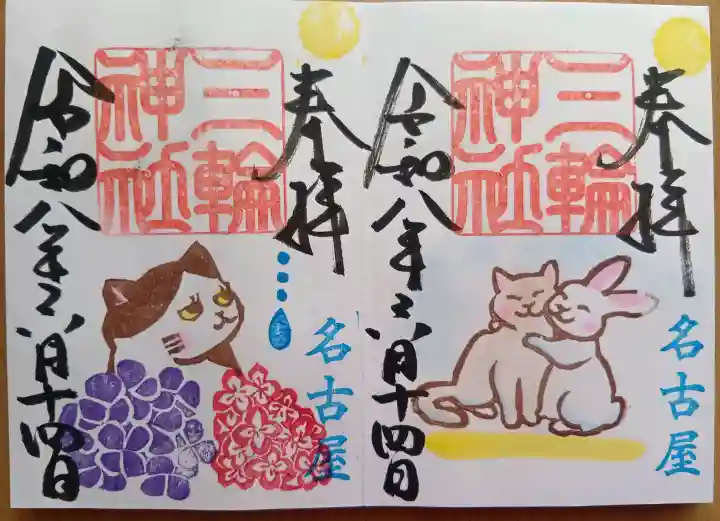 奉拝
三輪
神社
名古屋
令和八年六月十四日
奉拝
三輪
神社
名古屋
令和八年六月十四日